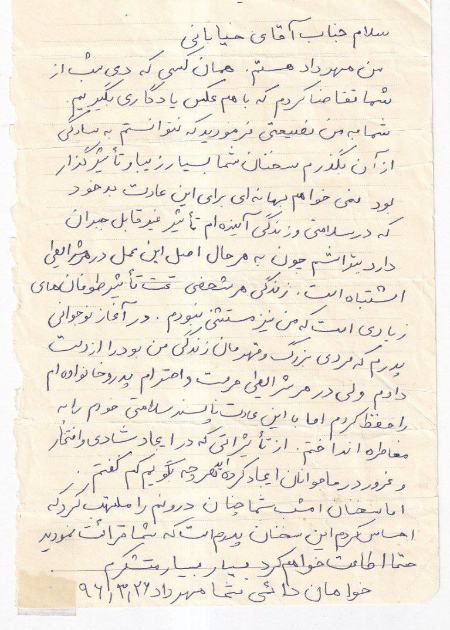 سلام جناب آقای خیابانی
من مهرداد هستم. همان کسی که دی شب از
شما تقاضا کردم که با هم عکس یادگاری بگیریم.
شما به من نصیحتی فرمودید که نتوانستم به سادگی
از آن بگذرم سخنان شما بسیار زیبا و تأثیرگذار
بود نمی خواهم بهانه ای برای این عادت بد خود
که در سلامتی و زندگی آینده ام تأثیر غیر قابل جبران
دارد بتراشم چون به هر حال اصل این عمل در هر شرایطی
اشتباه است. زندگی هر شخصی تحت تأثیر طوفان های
زیادی است که من نیز مستثنی نبودم. در آغاز نوجوانی
پدرم که مردی بزرگ و قهرمان زندگی من بود را از دست
دادم ولی در هر شرایطی حرمت و احترام پدر و خانواده ام
را حفظ کردم اما با این عادت ناپسند سلامتی خودم را به
مخاطره انداختم. از تأثیراتی که در ایجاد شادی و افتخار
و غرور در ما جوانان ایجاد کرده هر چه بگویم کم گفتم.
اما سخنان امشب شما چنان درونم را ملتهب کرد که
احساس کردم این سخنان پدرم است که شما قرائت نمودید
حتما اطاعت خواهم کرد بسیار بسیار متشکرم
خواهان دائمی شما مهرداد ۹۶/۳/۲۶